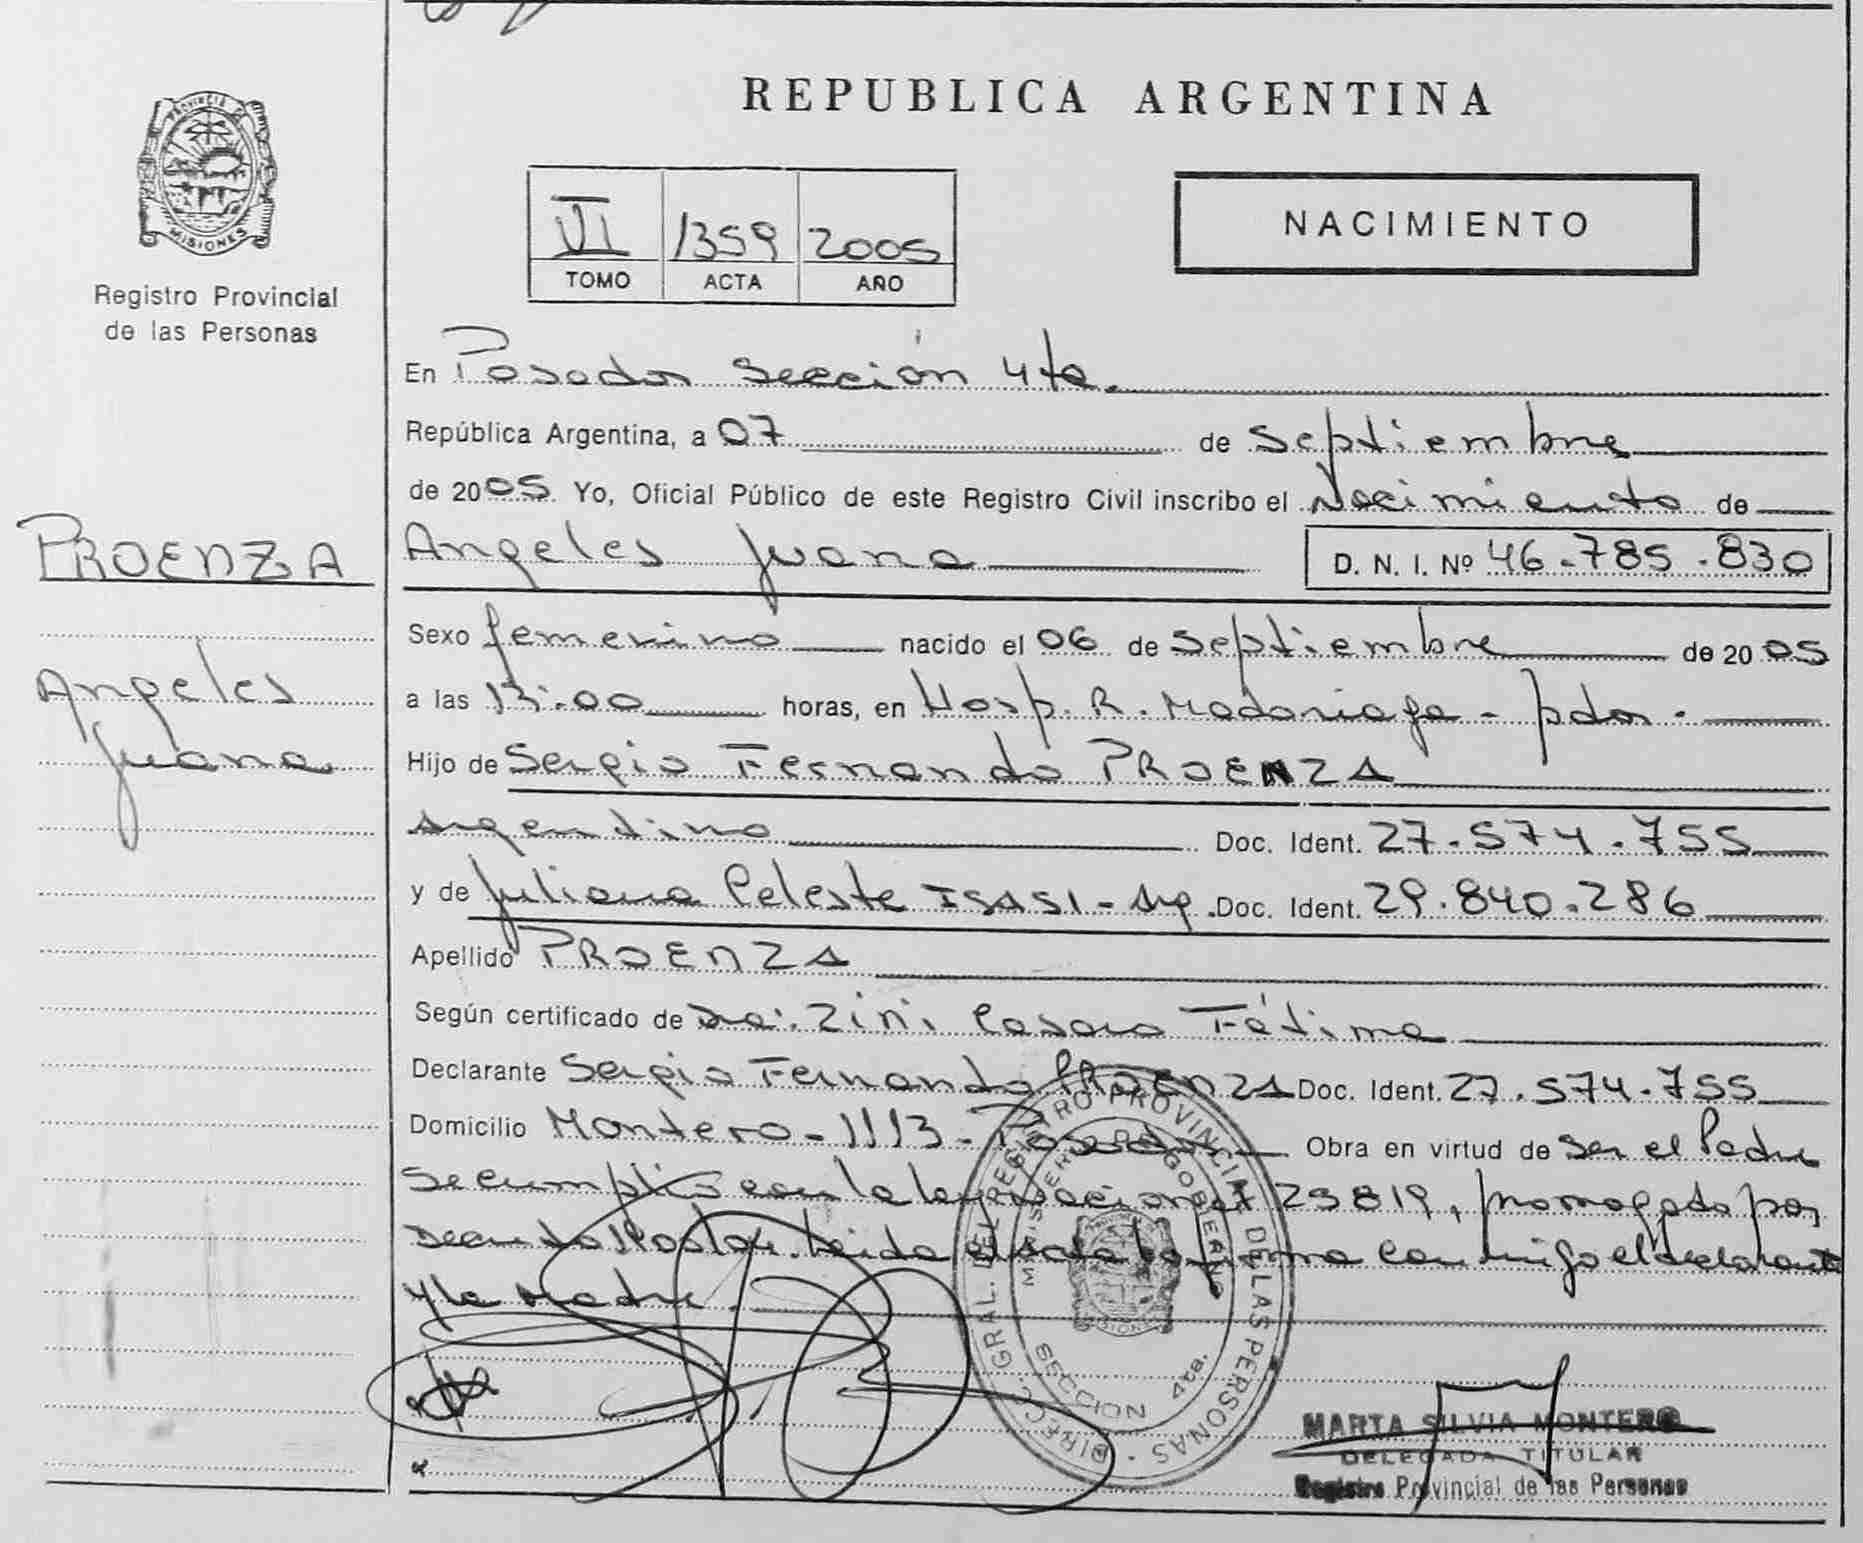 REPUBLICA ARGENTINA
PROVINCIA DE
MISIONES
Registro Provincial
de las Personas
VI 1359 2005
TOMO ACTA AÑO
NACIMIENTO
En Posadas Sección 4ta.
República Argentina, a 07 de Septiembre
de 2005 Yo, Oficial Público de este Registro Civil inscribo el Nacimiento de
PROENZA
Angeles Juana
Angeles Juana D. N. I. Nº 46.785.830
Sexo femenino nacido el 06 de Septiembre de 2005
a las 13:00 horas, en Hosp. R. Madariaga - pdas.
Hijo de Sergio Fernando PROENZA
argentino Doc. Ident. 27.574.755
y de Juliana Celeste ISASI - Arg. Doc. Ident. 29.840.286
Apellido PROENZA
Según certificado de Dra. Zini Fátima
Declarante Sergio Fernando PROENZA Doc. Ident. 27.574.755
Domicilio Montero - 1113 - Posadas Obra en virtud de Ser el Padre
Se cumplió con la ley nacional 25819, prorrogado por
decreto leida el acta la firma conmigo el declarante
y la Madre.
DIRECC. GRAL. DEL REGISTRO PROVINCIAL DE LAS PERSONAS
MINISTERIO DE GOBIERNO
SECCION 4ta.
MARTA SILVIA MONTERO
DELEGADA TITULAR
Registro Provincial de las Personas